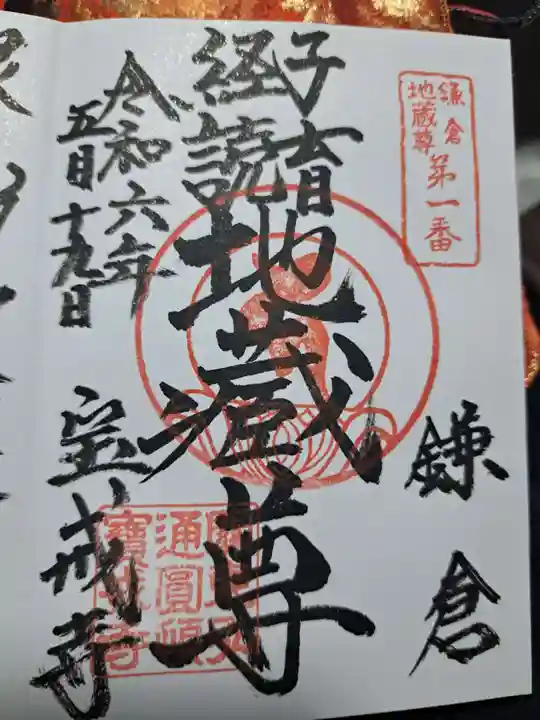 鎌倉
地蔵尊
第一番
鎌倉
子育
経読
地蔵尊
令和六年
五月十九日
宝戒寺